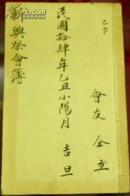 會友 仝立
民國拾肆年乙丑小陽月 吉旦
新興祭會簿